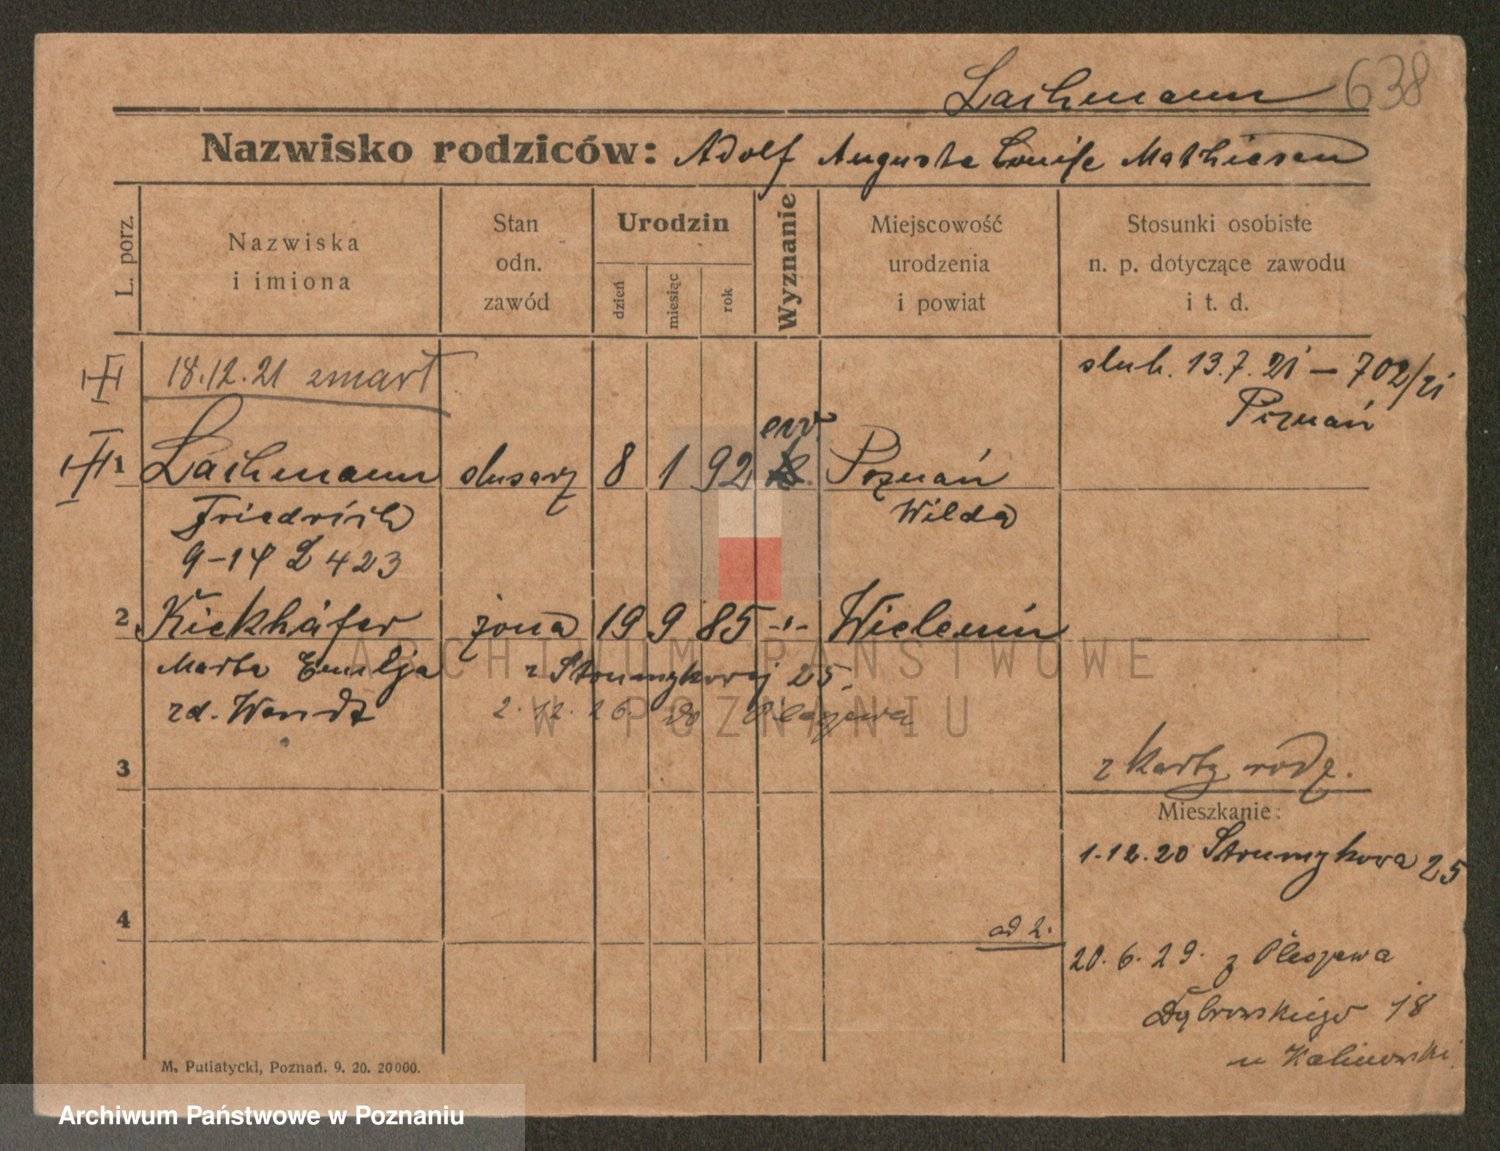 Lachmann 638
Nazwisko rodziców: Adolf Auguste Louise Mathiesen
L. porz.
Nazwiska
i imiona
Stan
odn.
zawód
Urodzin
dzień
miesiąc
rok
Wyznanie
Miejscowość
urodzenia
i powiat
Stosunki osobiste
n. p. dotyczące zawodu
i t. d.
18.12.21 zmarł
ślub. 13.7.21 – 702/21
Poznań
ew.
1 Lachmann ślusarz 8 1 92 Poznań
Friedrich Wilda
9-14 L 423
2 Kickhäfer żona 19 9 85 -"- Wieleniń
Marta Emilja z Strumykowej 25
rd. Wendt 2.12.26 do Pleszewa
3
z karty rodz.
Mieszkanie:
1.12.20 Strumykowa 25
4
ad 2.
20.6.29. z Pleszewa
Dąbrowskiego 18
u Kalinowski
M. Putiatycki, Poznań. 9. 20. 20000.
ARCHIWUM PAŃSTWOWE
W POZNANIU
Archiwum Państwowe w Poznaniu